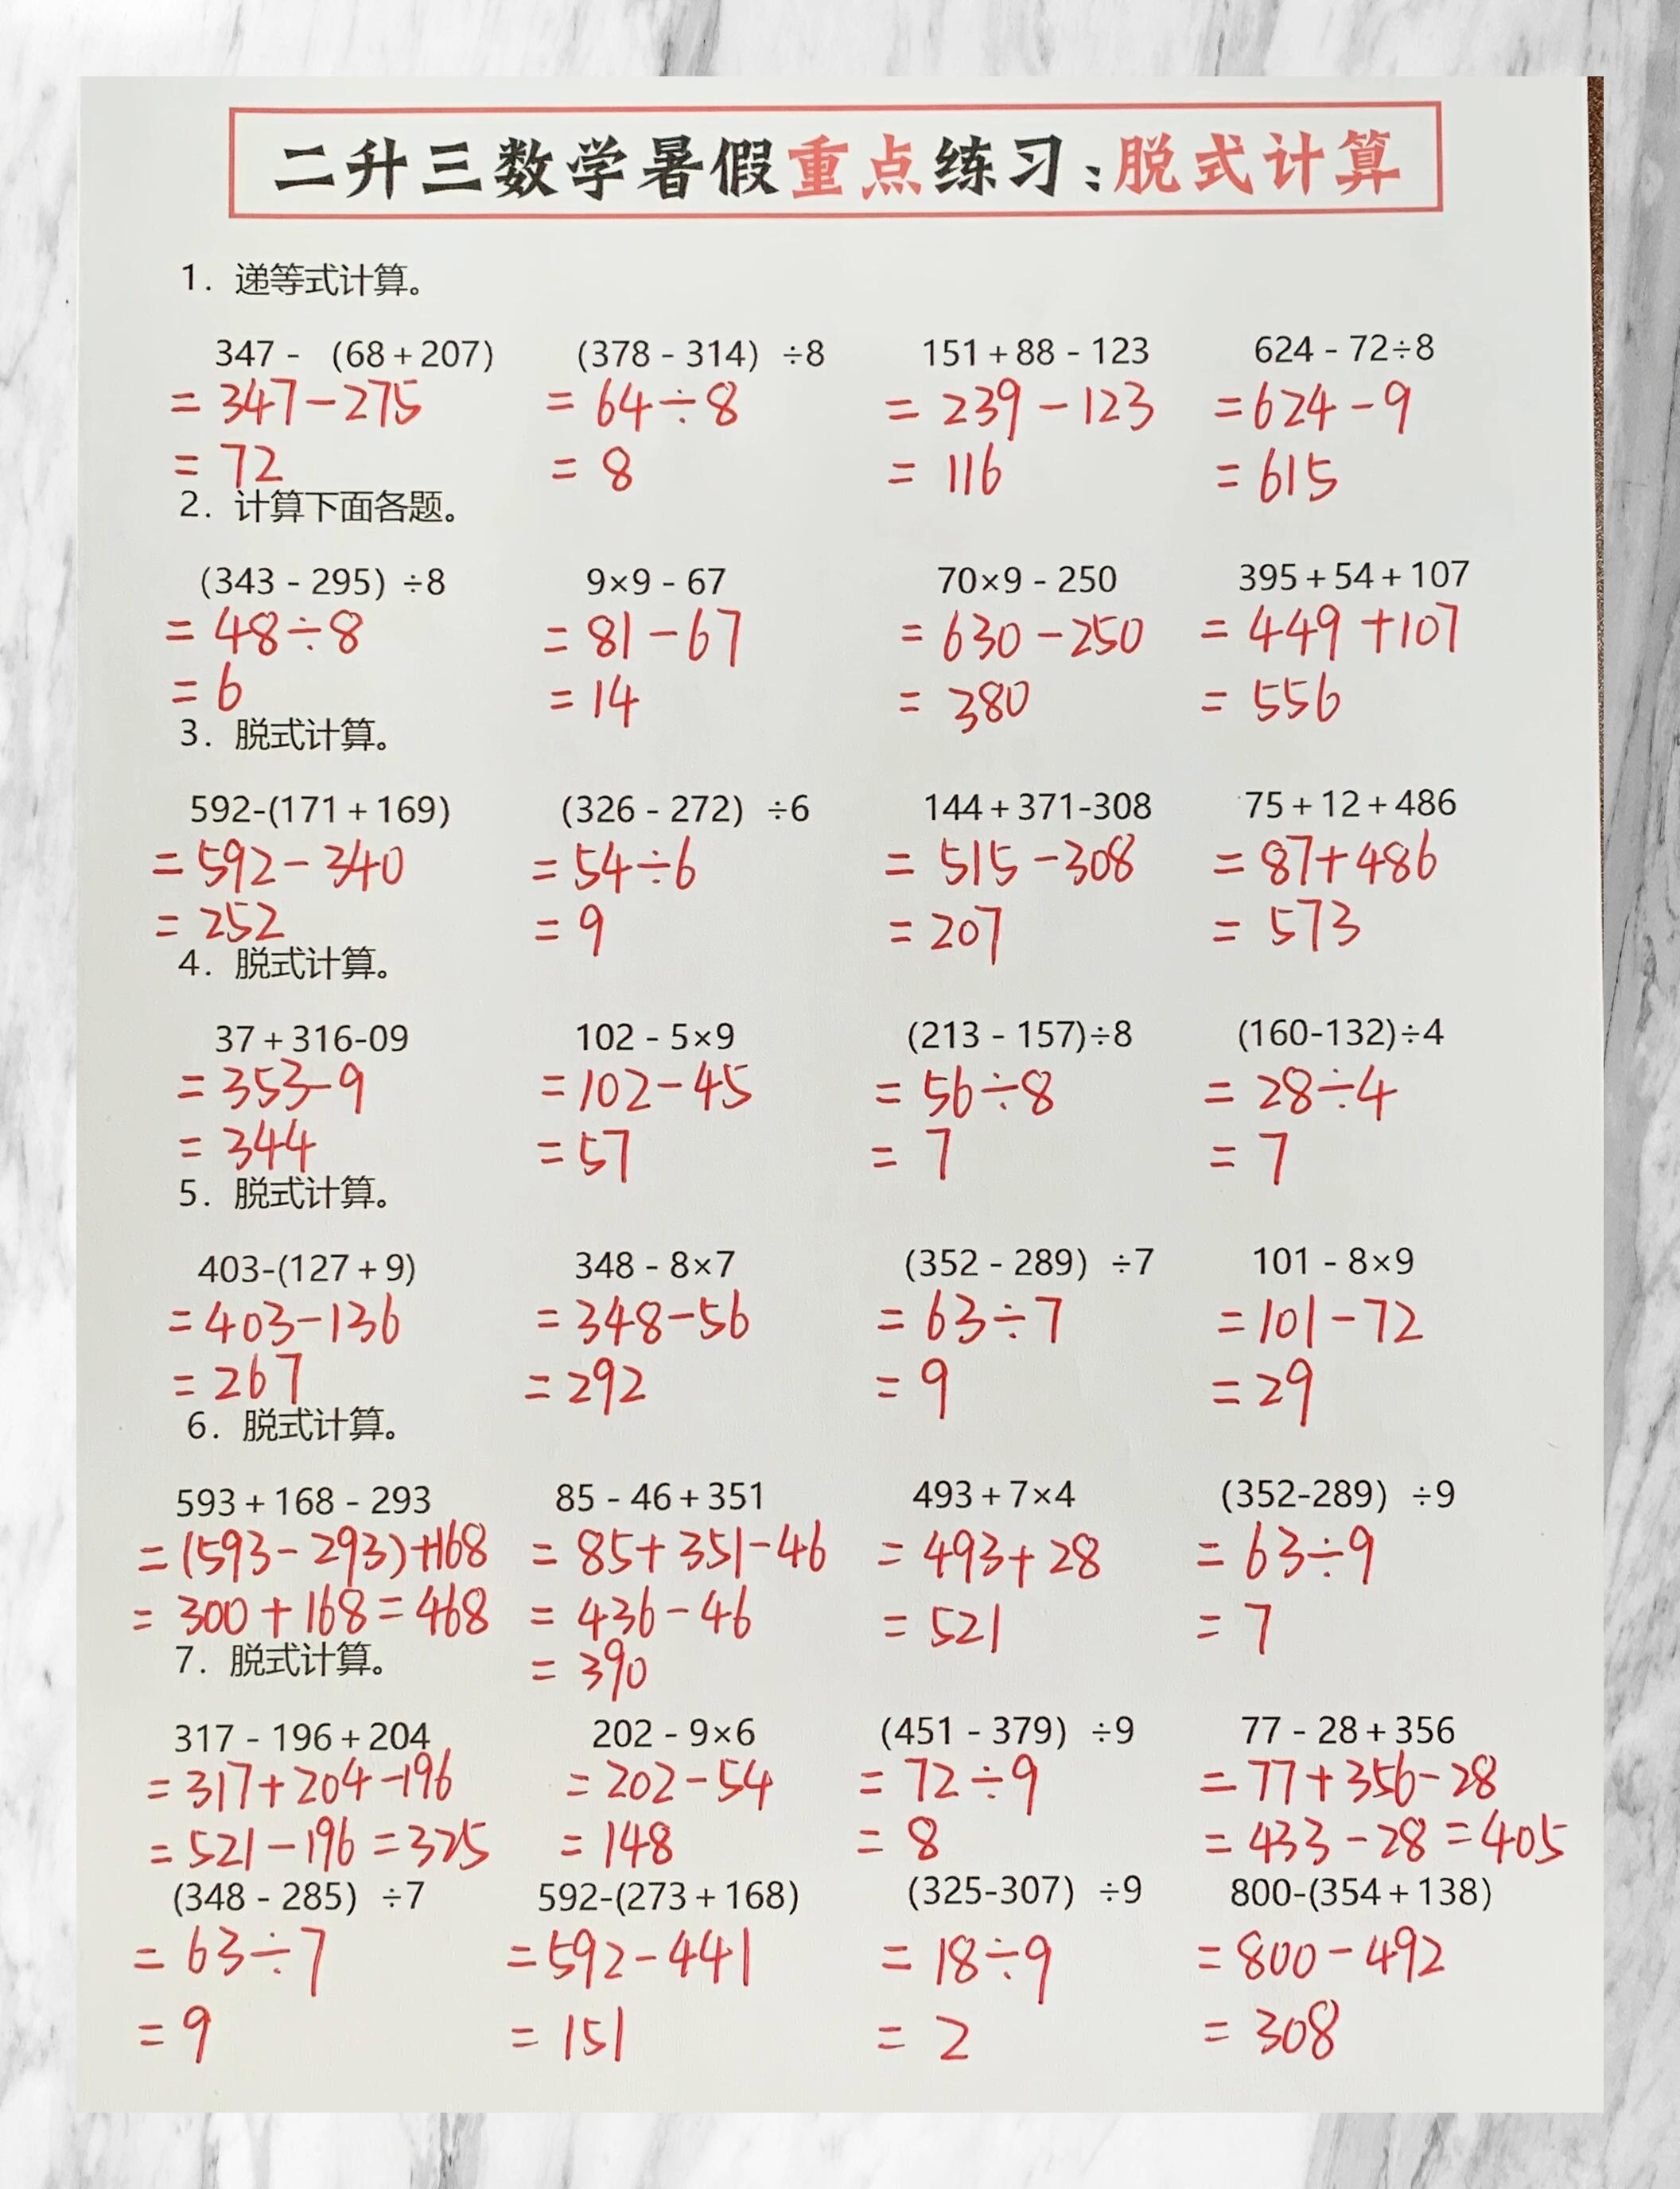 二升三数学暑假重点练习:脱式计算
1. 递等式计算。
347 - (68+207) (378-314) ÷8 151+88-123 624-72÷8
=347-275 =64÷8 =239-123 =624-9
=72 =8 =116 =615
2. 计算下面各题。
(343-295) ÷8 9×9-67 70×9-250 395+54+107
=48÷8 =81-67 =630-250 =449+107
=6 =14 =380 =556
3. 脱式计算。
592-(171+169) (326-272) ÷6 144+371-308 75+12+486
=592-340 =54÷6 =515-308 =87+486
=252 =9 =207 =573
4. 脱式计算。
37+316-09 102-5×9 (213-157)÷8 (160-132)÷4
=353-9 =102-45 =56÷8 =28÷4
=344 =57 =7 =7
5. 脱式计算。
403-(127+9) 348-8×7 (352-289) ÷7 101-8×9
=403-136 =348-56 =63÷7 =101-72
=267 =292 =9 =29
6. 脱式计算。
593+168-293 85-46+351 493+7×4 (352-289) ÷9
=(593-293)+168 =85+351-46 =493+28 =63÷9
=300+168=468 =436-46 =521 =7
7. 脱式计算。 =390
317-196+204 202-9×6 (451-379) ÷9 77-28+356
=317+204-196 =202-54 =72÷9 =77+356-28
=521-196=325 =148 =8 =433-28=405
(348-285) ÷7 592-(273+168) (325-307) ÷9 800-(354+138)
=63÷7 =592-441 =18÷9 =800-492
=9 =151 =2 =308